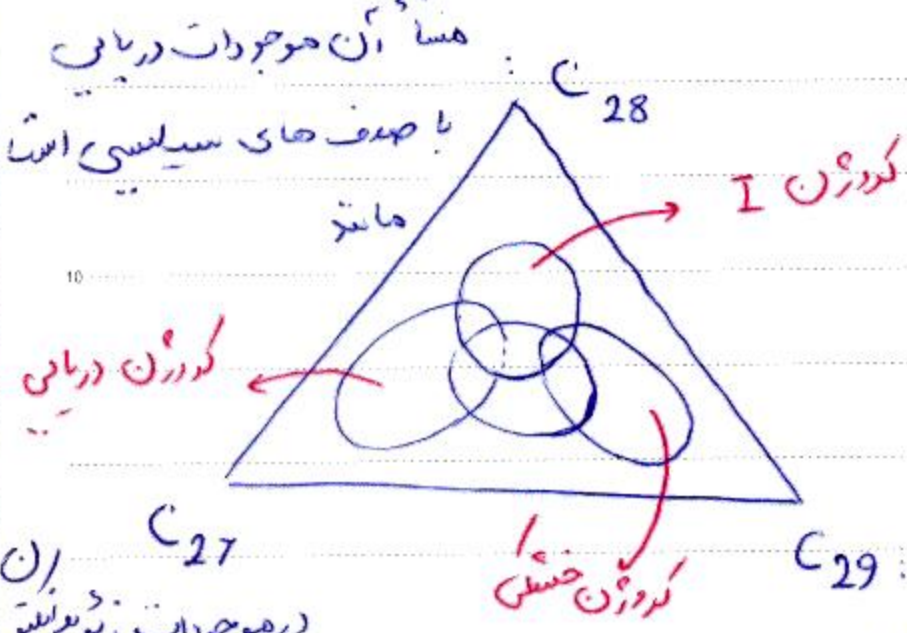 منشأ آن موجودات دریایی
C 28
با صدف های سیلیسی است
مانند
کروژن I
10
کروژن دریایی
C 27
کروژن خشکی
C 29 :
در موجودات